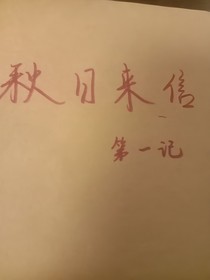 秋日来信
第一记